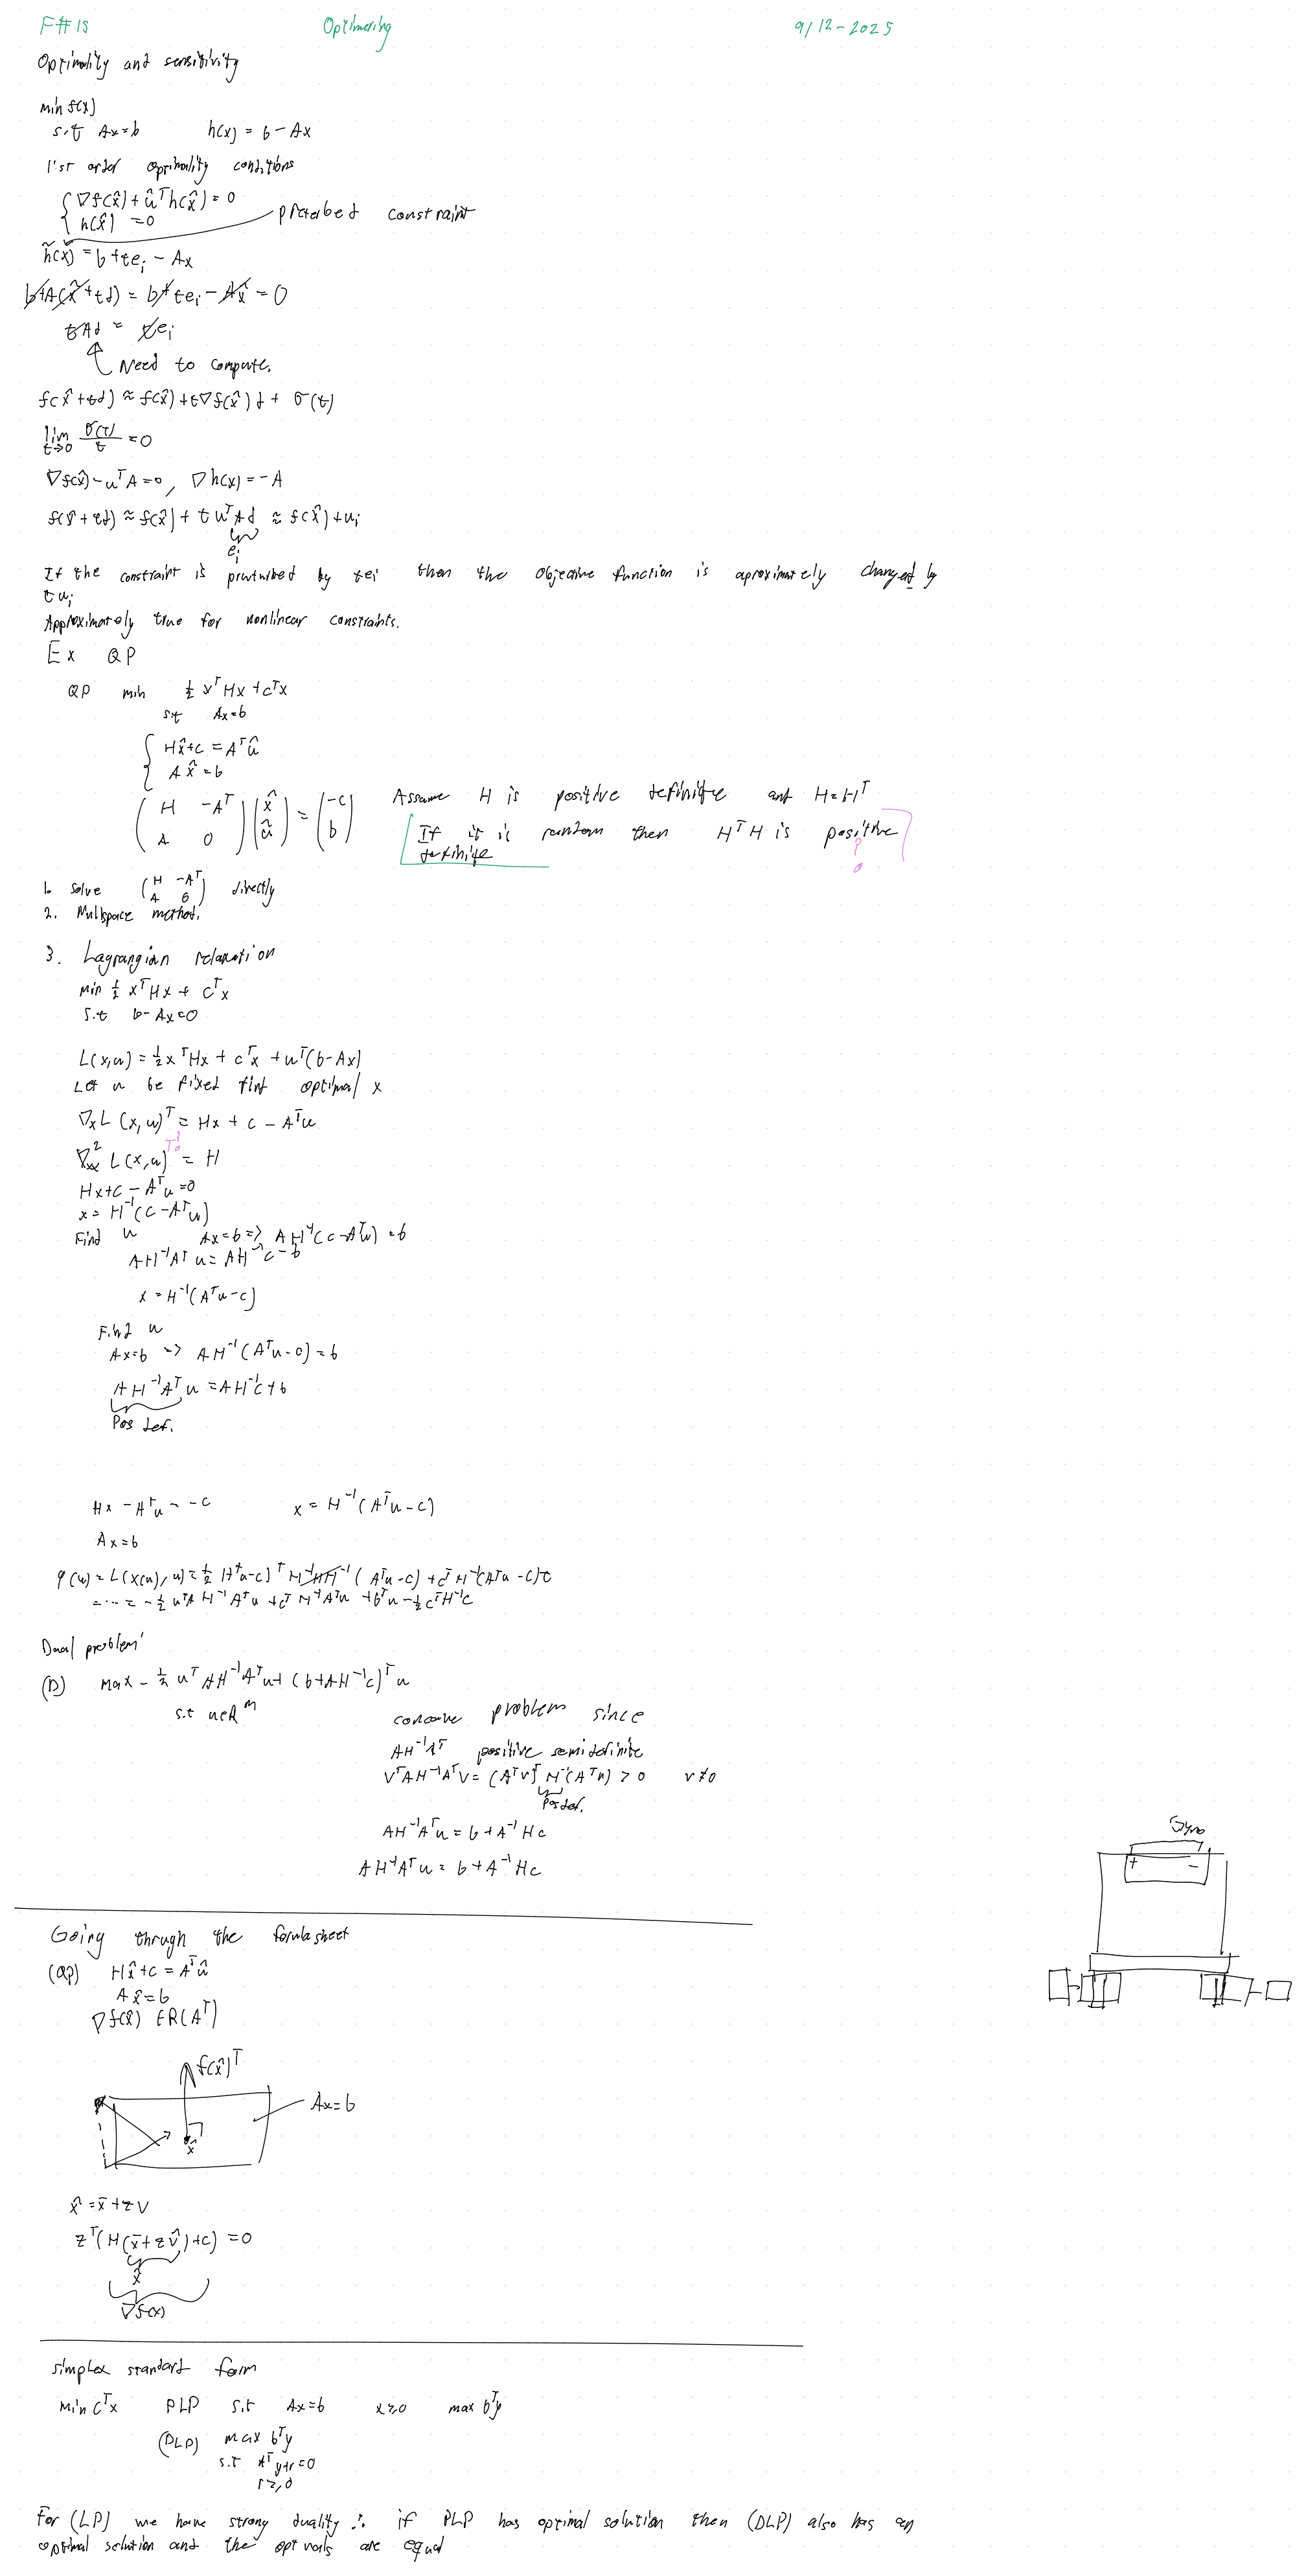 F#15 Optimering 9/12-2025
Optimality and sensitivity
min f(x)
s.t Ax=b h(x) = b-Ax
1'st order optimality conditions
{ ∇f(x̂)+û^T h(x̂)=0
{ h(x̂) =0
pterbed constraint
h̃(x) = b+te_i - Ax
b+A(x̂+td) = b+te_i - Ax̂ = 0
tAd = te_i
Need to compute.
f(x̂+td) ≈ f(x̂)+t∇f(x̂)d + σ(t)
lim t→0 σ(t)/t = 0
∇f(x̂)-u^T A=0, ∇h(x) = -A
f(x̂+td) ≈ f(x̂)+t u^T Ad ≈ f(x̂)+u_i
e_i
If the constraint is by te_i then the objective function is aproximately changed by
t u_i
Approximately true for nonlinear constraints.
Ex QP
QP min ½ x^T Hx + c^T x
s.t Ax=b
{ Hx̂+c = A^T û
{ Ax̂ = b
(H -A^T; A 0)(x̂; û) = (-c; b) Assume H is positive definite and H=H^T
If it is random then H^T H is positive ?
definite
1. Solve (H -A^T; A 0) directly
2. Nullspace method.
3. Lagrangian relaxation
min ½ x^T Hx + c^T x
s.t b-Ax=0
L(x,u) = ½ x^T Hx + c^T x + u^T(b-Ax)
Let u be fixed find optimal x
∇_x L(x,u)^T = Hx + c - A^T u
∇²_xx L(x,u)^T? = H
Hx+c - A^T u=0
x = H^-1(c-A^T u)
Find u Ax=b => AH^-1(c-A^T u) = b
AH^-1 A^T u = AH^-1 c - b
x = H^-1(A^T u-c)
Find u
Ax=b => AH^-1(A^T u-c) = b
AH^-1 A^T u = AH^-1 c + b
Pos def.
Hx - A^T u = -c x = H^-1(A^T u-c)
Ax=b
φ(u) = L(x(u),u) = ½ (A^T u-c)^T H^-1 H H^-1 (A^T u-c) + c^T H^-1(A^T u-c)+
= ... = -½ u^T A H^-1 A^T u + c^T H^-1 A^T u + b^T u - ½ c^T H^-1 c
Dual problem
(D) max - ½ u^T AH^-1 A^T u + (b+AH^-1 c)^T u
s.t u∈R^m
concave problem since
AH^-1 A^T positive semidefinite
v^T AH^-1 A^T v = (A^T v)^T H^-1 (A^T u) > 0 v≠0
Pos def.
AH^-1 A^T u = b + A^-1 Hc
AH^-1 A^T u = b + A^-1 Hc
Gyro
+ -
Going through the formula sheet
(QP) Hx̂+c = A^T û
Ax̂=b
∇f(x̂) ∈R(A^T)
f(x̂)^T
Ax=b
x̂
x̂ = x̄+zv
z^T(H(x̄+zv̂)+c) = 0
x̂
∇f(x)
simplex standard form
min c^T x PLP s.t Ax=b x≥0 max b^T y
(DLP) max b^T y
s.t A^T y+r=0
r≥0
For (LP) we have strong duality ∴ if PLP has optimal solution then (DLP) also has an
optimal solution and the optvals are equal